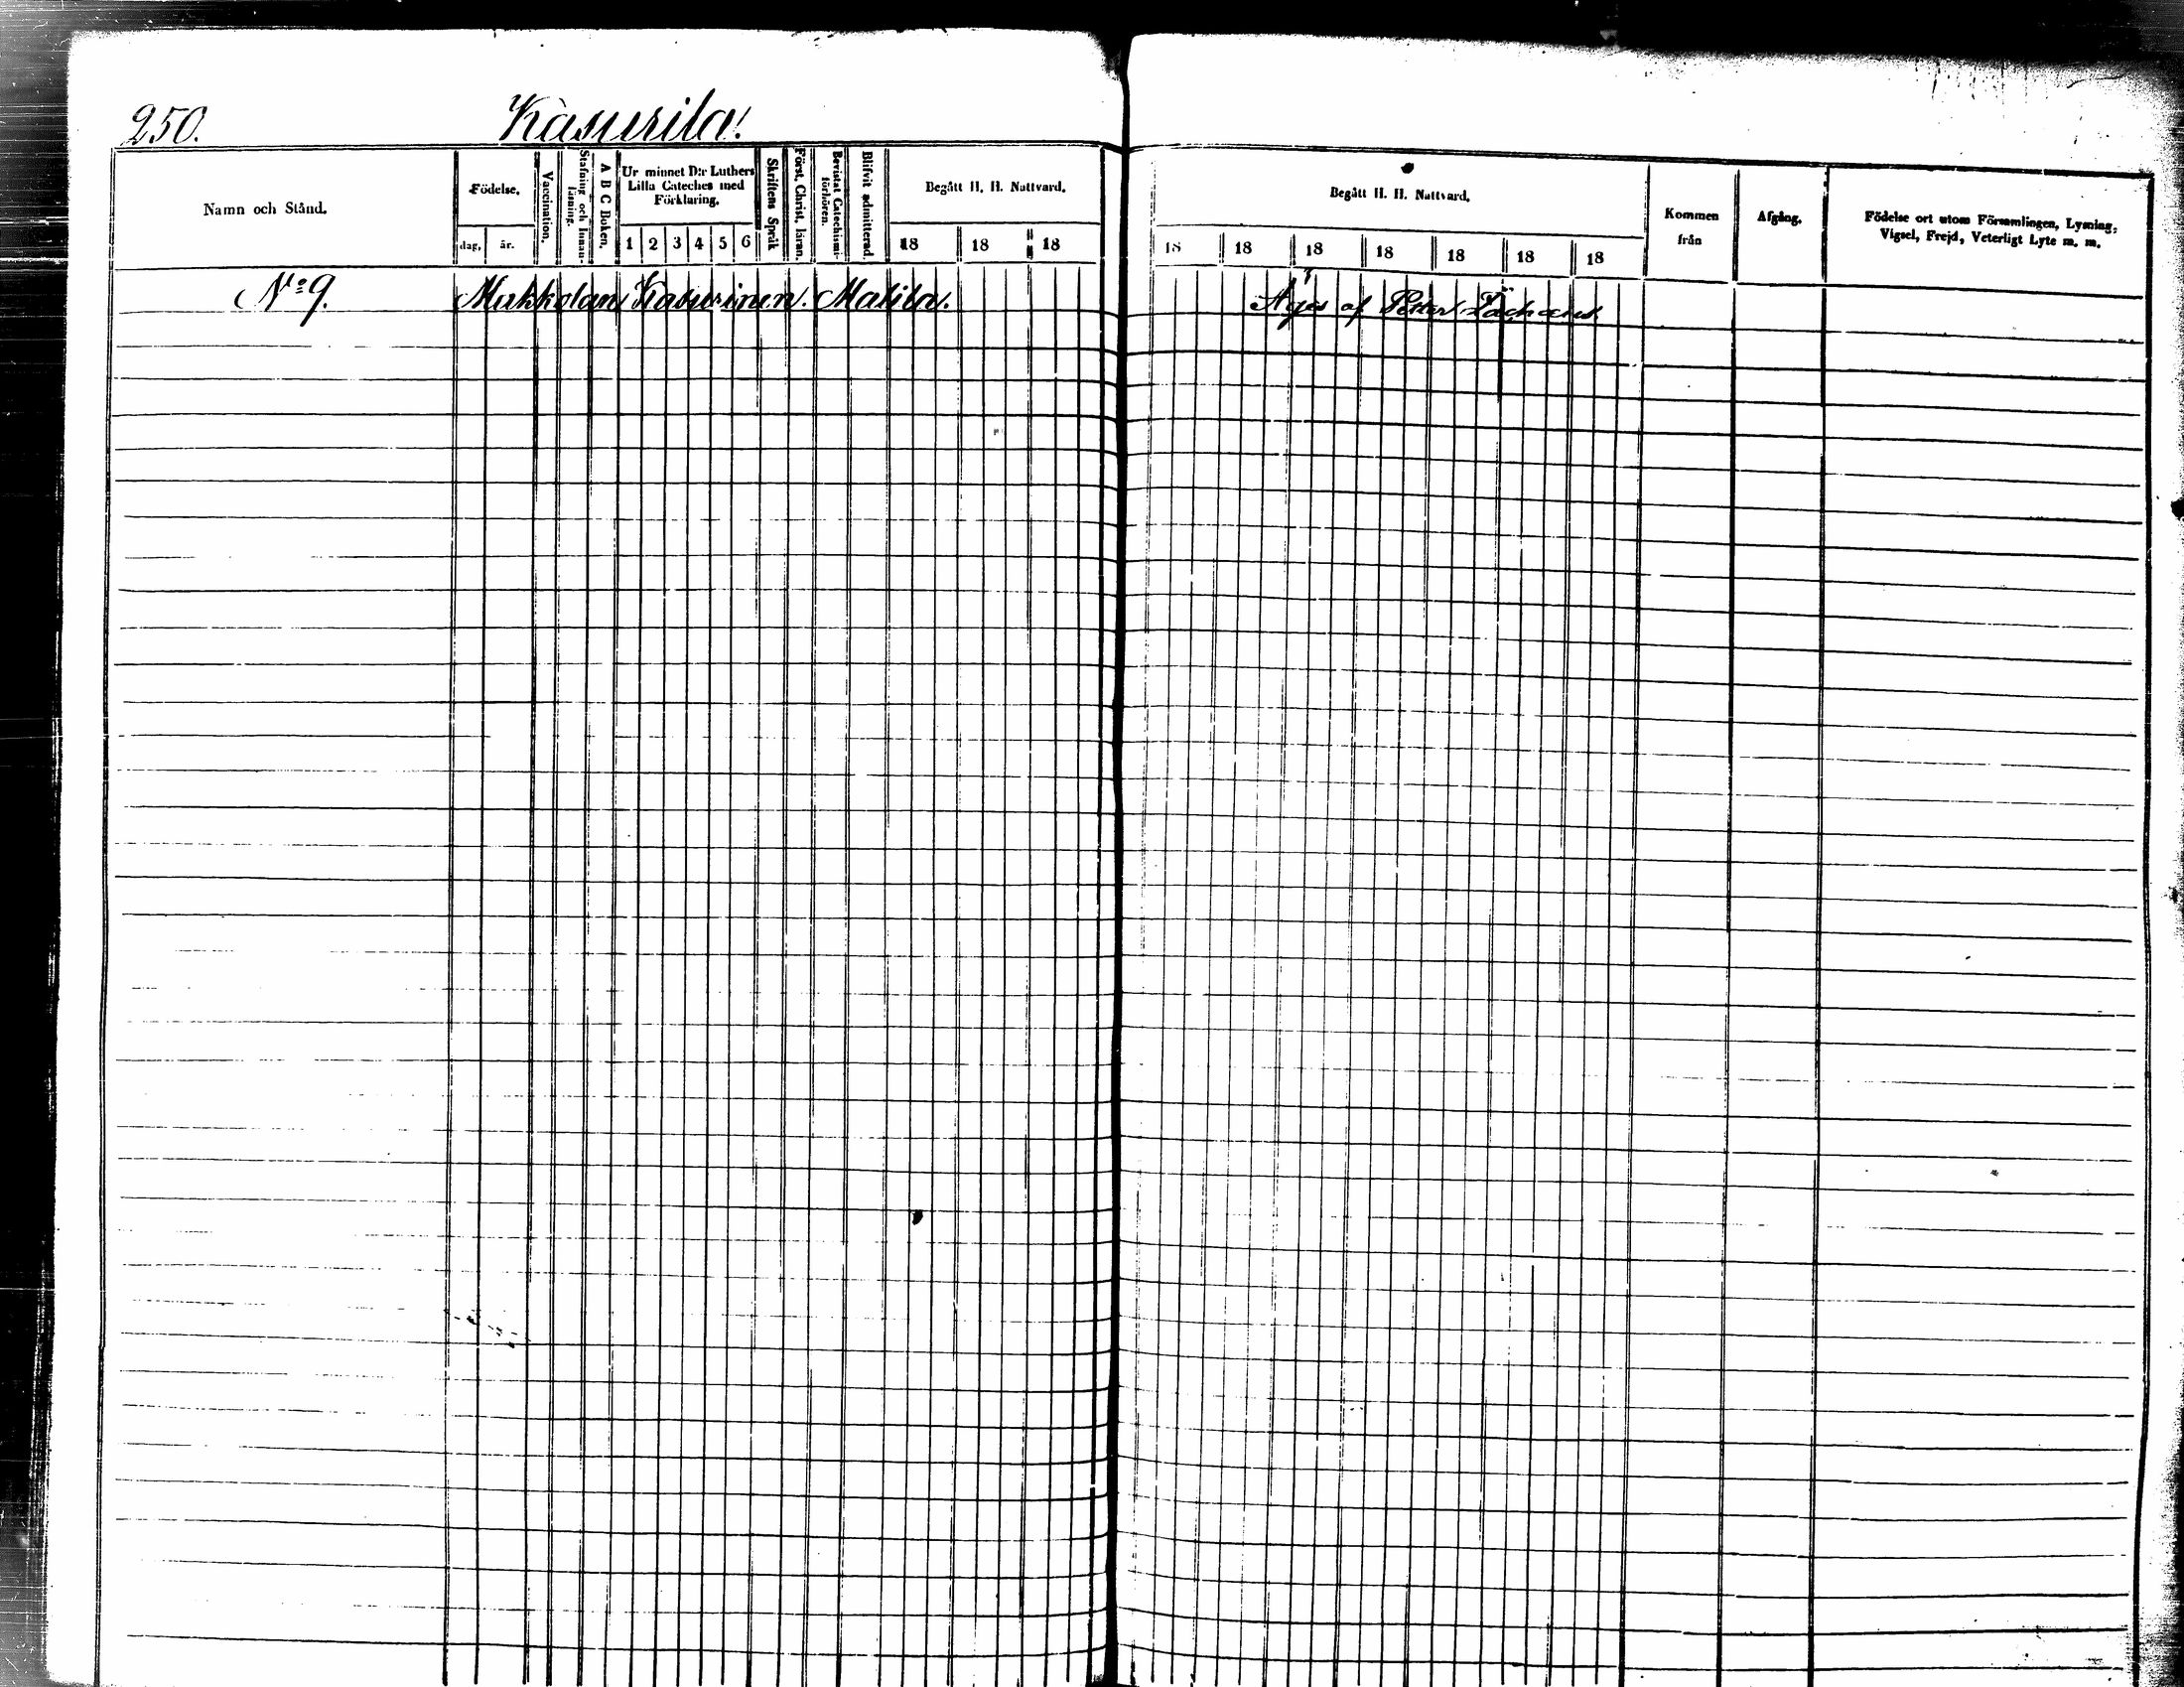 250. Kasurila.
Namn och Stånd.
Födelse.
dag. år.
Vaccination.
Stafning och Innan-läsning.
A B C Boken.
Ur minnet D:r Luthers Lilla Cateches med Förklaring.
1 2 3 4 5 6
Skriftens Språk
Först. Christ. läran.
Bevistat Catechismi-förhören.
Blifvit admitterad.
Begått H. H. Nattvard.
18 18 18
Begått H. H. Nattvard.
18 18 18 18 18 18 18
Kommen från
Afgång.
Födelse ort utom Församlingen, Lysning, Vigsel, Frejd, Veterligt Lyte m. m.
No 9. Makkolan Kasurinen. Matila. Äges af Petter